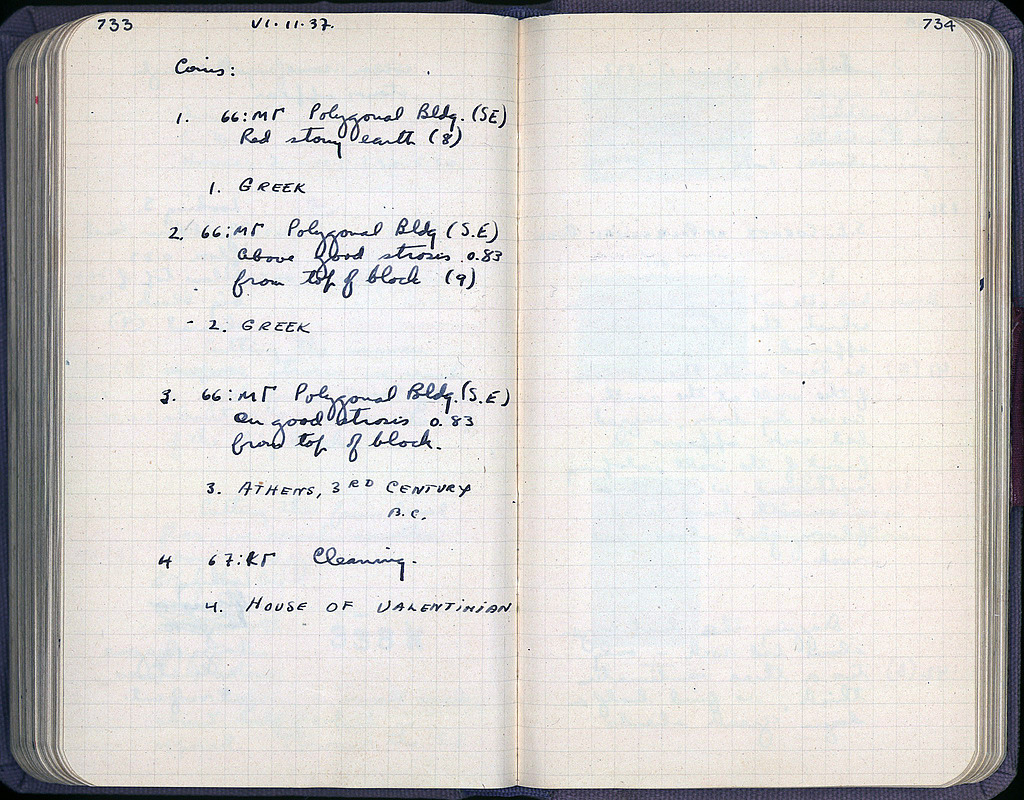 733
VI.11.37.
Coins:
1. 66:ΜΓ Polygonal Bldg. (SE)
Red stony earth (8)
1. GREEK
2. 66:ΜΓ Polygonal Bldg (S.E)
above good strosis 0.83
from top of block (9)
2. GREEK
3. 66:ΜΓ Polygonal Bldg. (S.E)
on good strosis 0.83
from top of block.
3. ATHENS, 3RD CENTURY
B.C.
4 67:ΚΓ Cleaning.
4. HOUSE OF VALENTINIAN
734